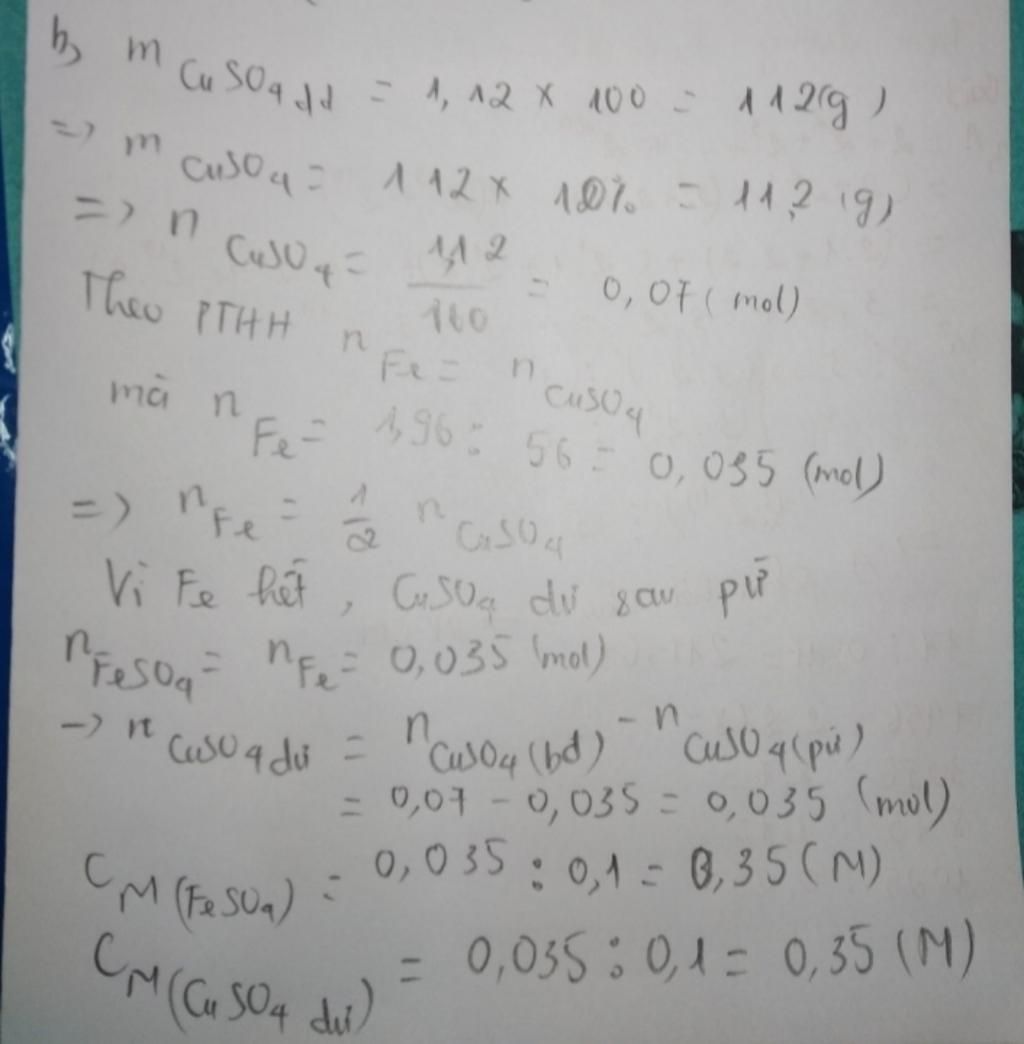 b, m CuSO4 dd = 1,12 x 100 = 112(g)
=> m CuSO4 = 112 x 10% = 11,2 (g)
=> n CuSO4 = 11,2 / 160 = 0,07 (mol)
Theo PTHH n Fe = n CuSO4
mà n Fe = 1,96 : 56 = 0,035 (mol)
=> n Fe = 1/2 n CuSO4
Vì Fe hết, CuSO4 dư sau pứ
n FeSO4 = n Fe = 0,035 (mol)
-> n CuSO4 dư = n CuSO4 (bđ) - n CuSO4 (pứ)
= 0,07 - 0,035 = 0,035 (mol)
C M (FeSO4) = 0,035 : 0,1 = 0,35 (M)
C M (CuSO4 dư) = 0,035 : 0,1 = 0,35 (M)